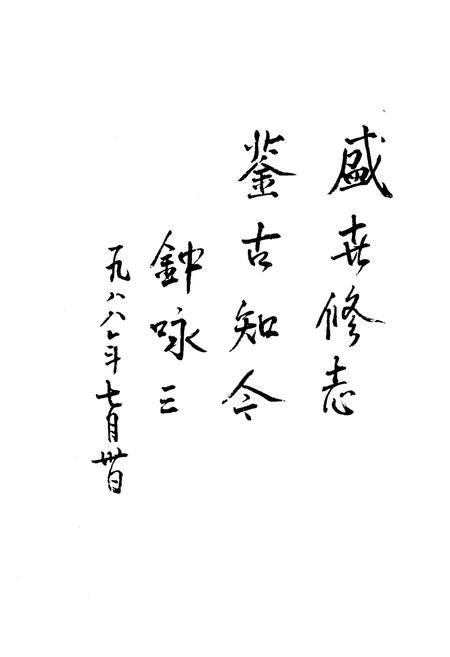 盛世修志
鉴古知今
钟咏三
一九八八年七月卅日